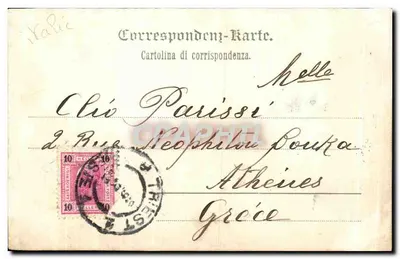 Italie
Correspondenz-Karte.
Cartolina di corrispondenza.
Melle
Clio Parissi
2 Rue Néophitou Bouka
Athènes
Grèce
10 10
10 10
TRIEST 2